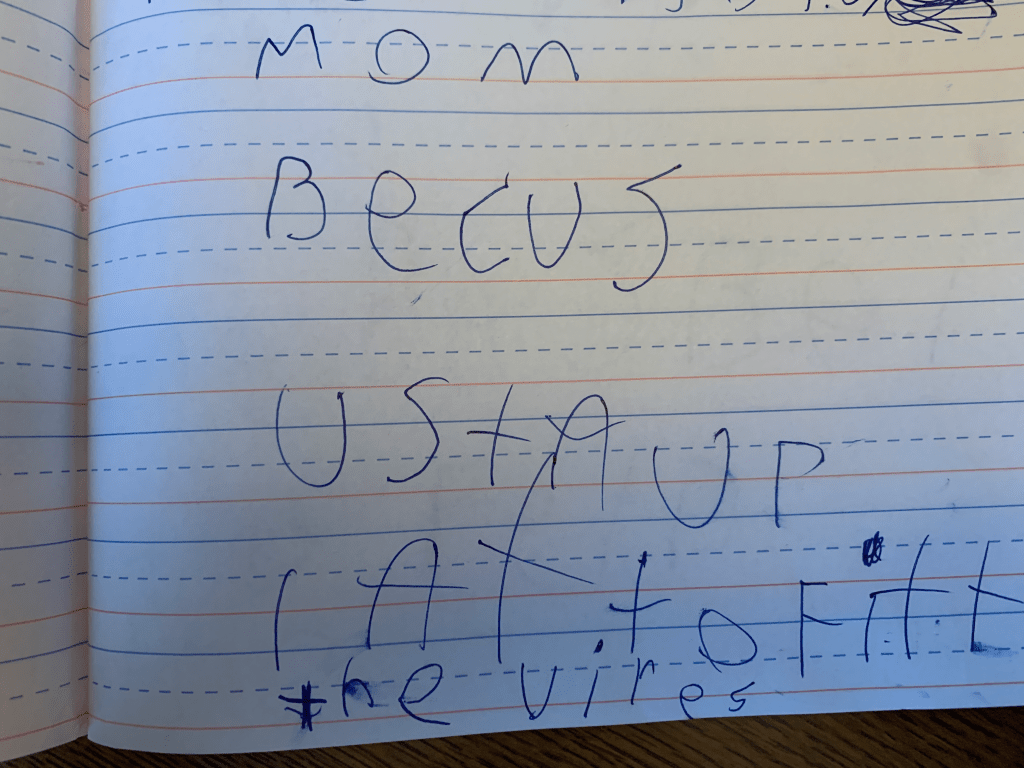 MOM
BeCUS
U StA UP
to Fitt
the vires